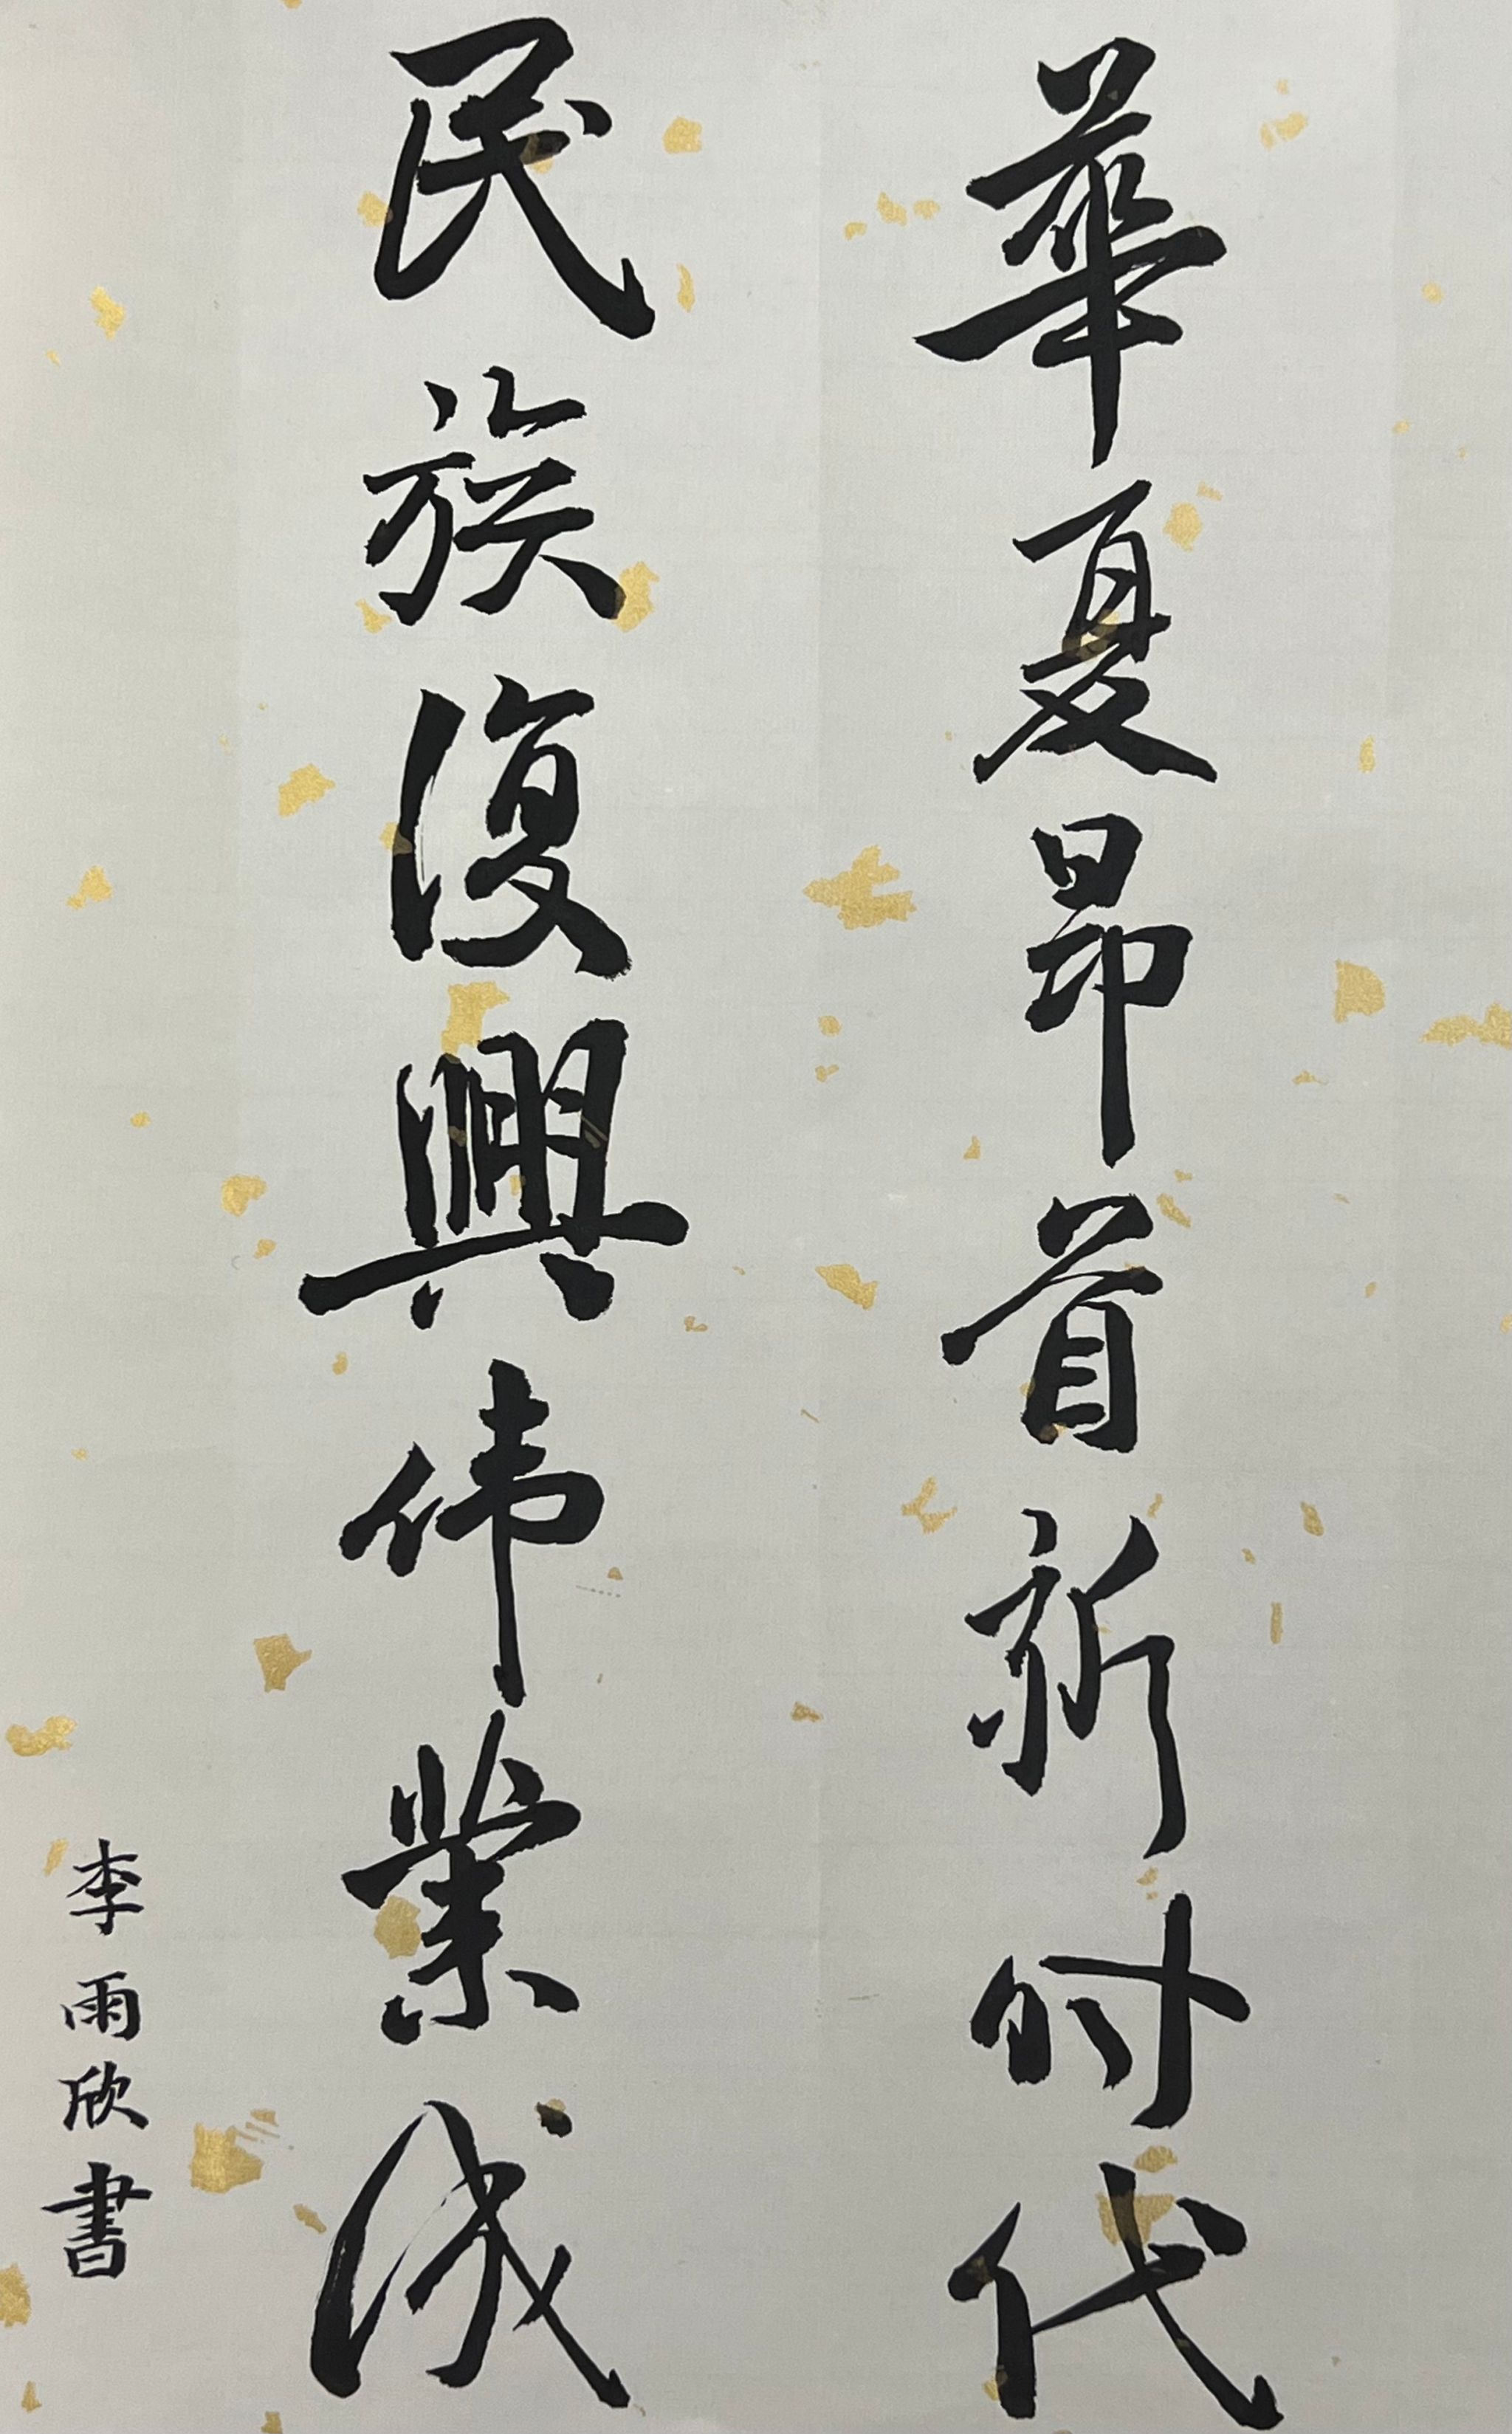 華夏昂首新时代
民族復興伟業成
李雨欣書